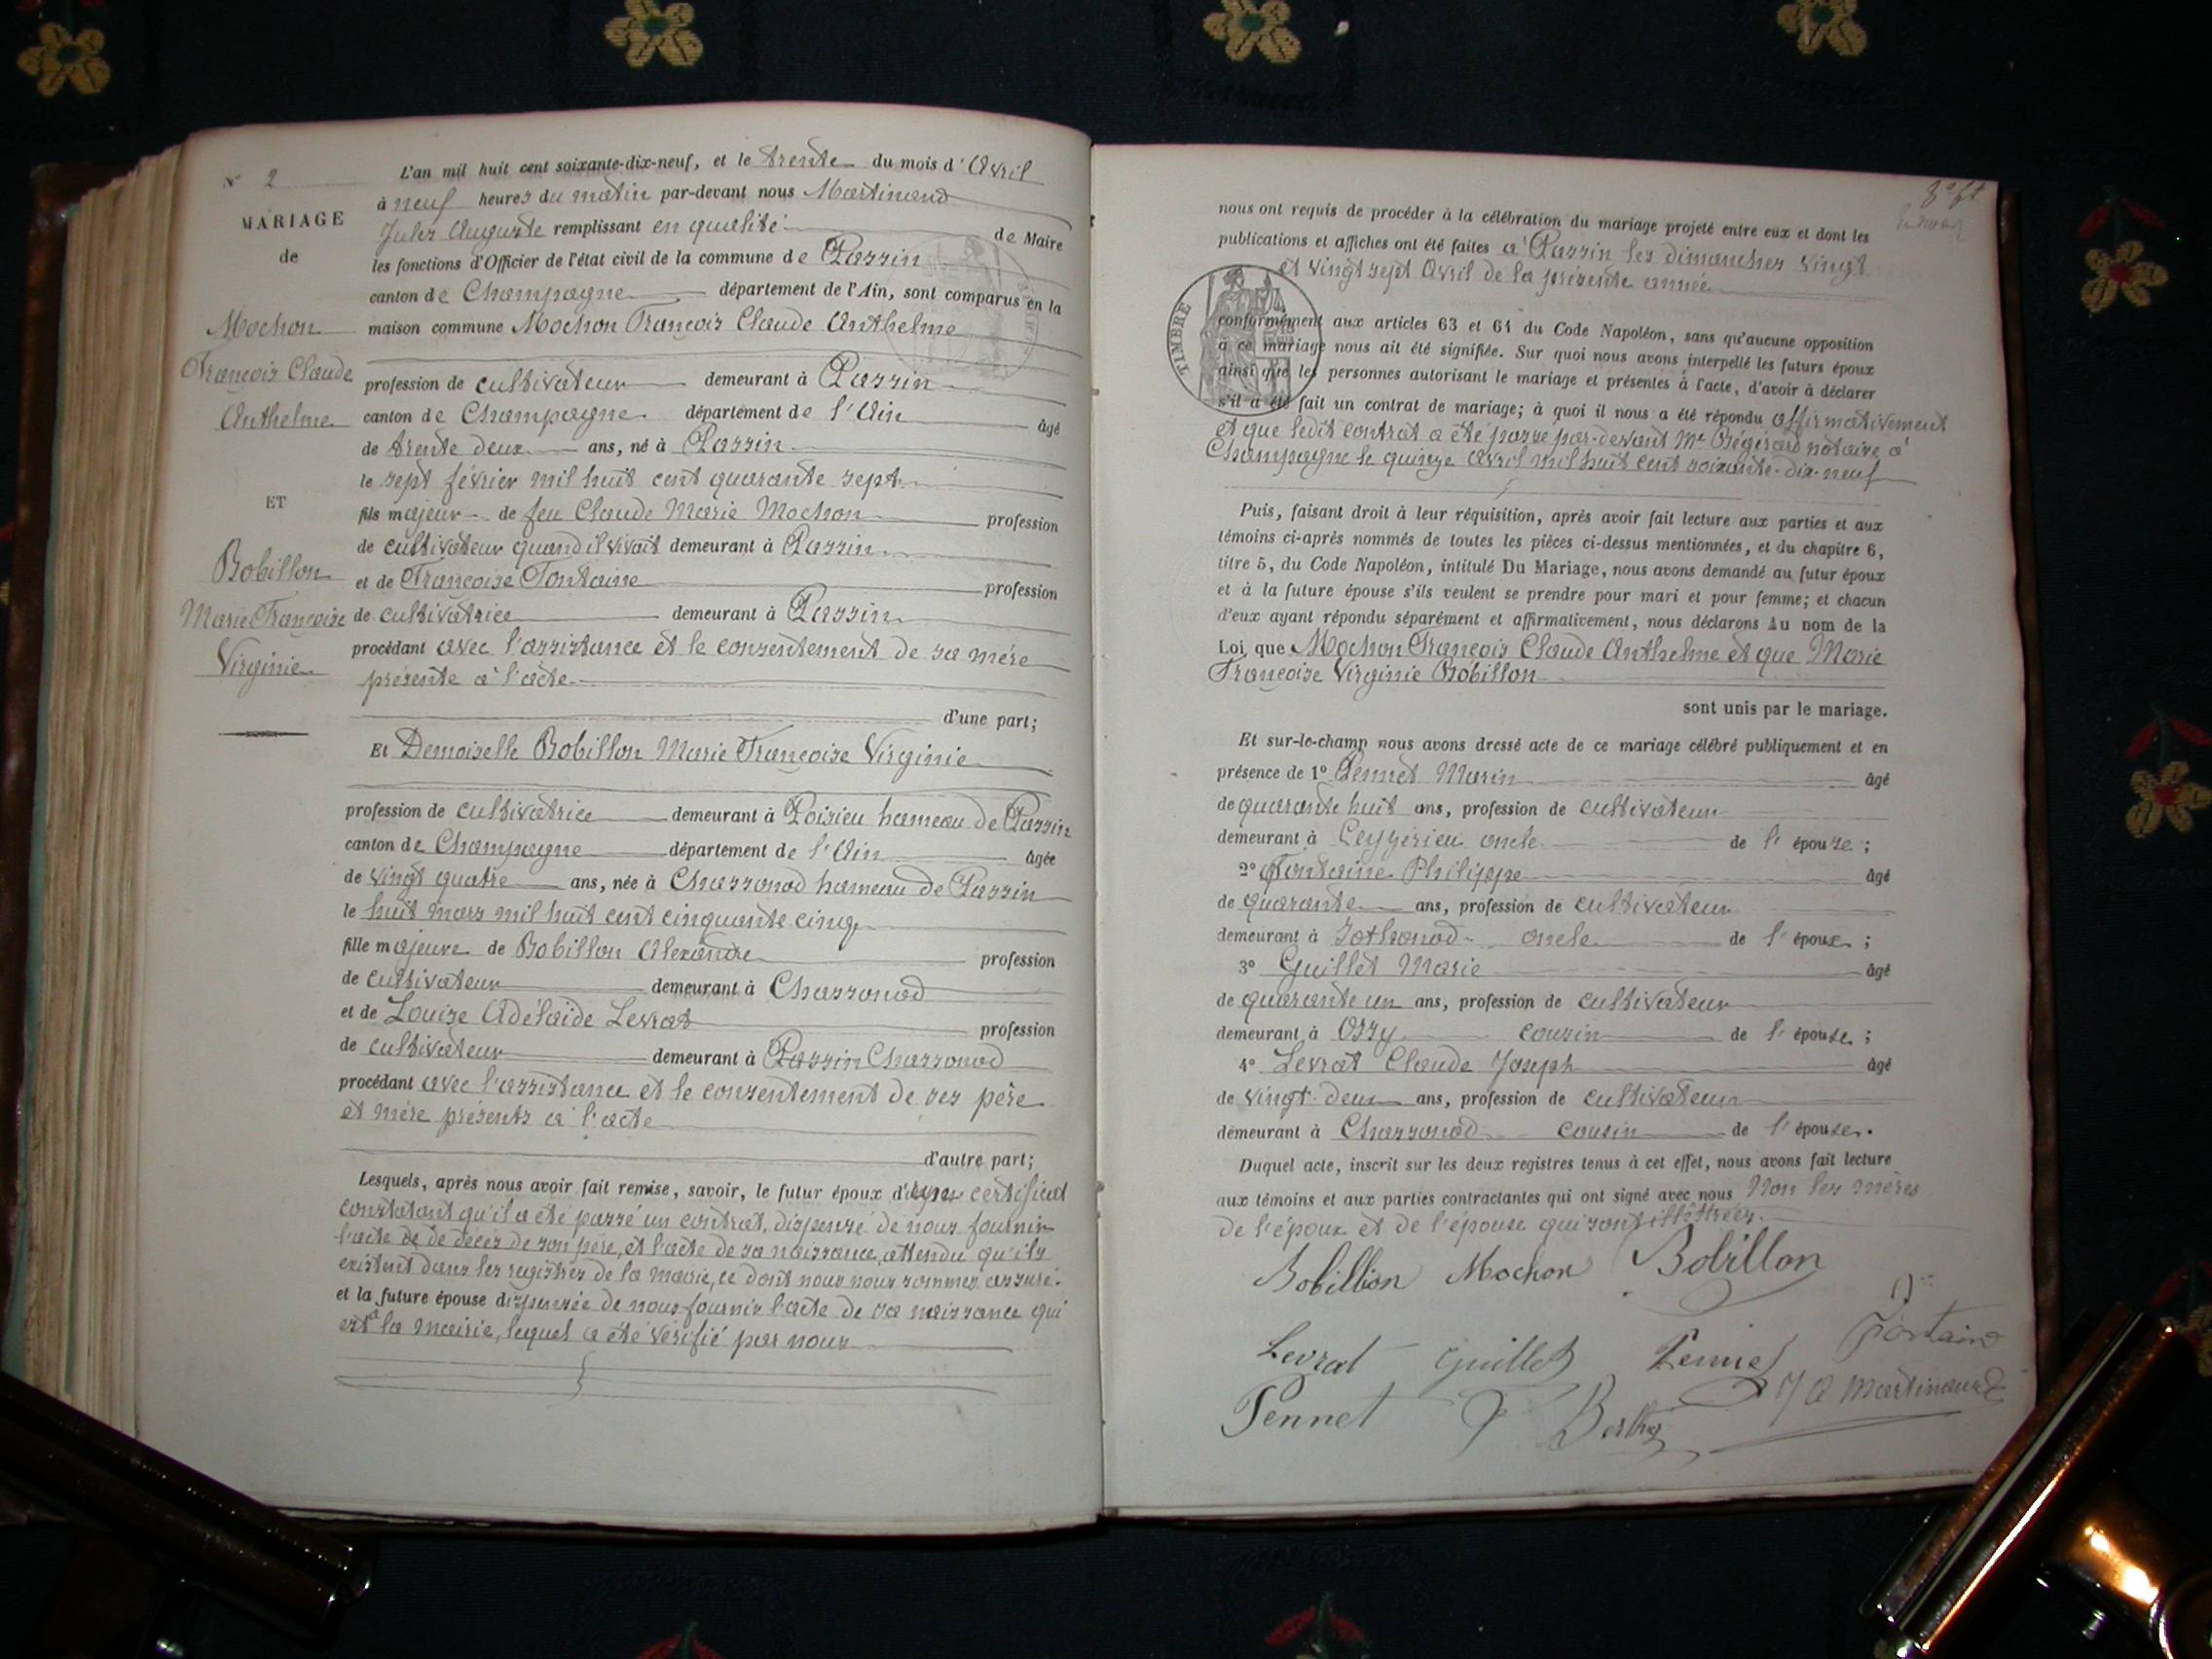 N° 2
MARIAGE
de
Mochon
François Claude
Anthelme
ET
Bobillon
Marie Françoise
Virginie
L'an mil huit cent soixante-dix-neuf, et le trente du mois d'Avril
à neuf heures du matin par-devant nous Martinand
Jules Auguste remplissant en qualité de Maire
les fonctions d'Officier de l'état civil de la commune de Passin
canton de Champagne département de l'Ain, sont comparus en la
maison commune Mochon François Claude Anthelme
profession de cultivateur demeurant à Passin
canton de Champagne département de l'Ain âgé
de trente deux ans, né à Passin
le sept février mil huit cent quarante sept
fils majeur de feu Claude Marie Mochon profession
de cultivateur quand il vivait demeurant à Passin
et de Françoise Fontaine profession
de cultivatrice demeurant à Passin
procédant avec l'assistance et le consentement de sa mère
présente à l'acte
d'une part;
Et Demoiselle Bobillon Marie Françoise Virginie
profession de cultivatrice demeurant à Poisieu hameau de Passin
canton de Champagne département de l'Ain âgée
de vingt quatre ans, née à Chassonod hameau de Passin
le huit mars mil huit cent cinquante cinq
fille majeure de Bobillon Alexandre profession
de cultivateur demeurant à Chassonod
et de Louise Adélaide Levrat profession
de cultivateur demeurant à Passin Chassonod
procédant avec l'assistance et le consentement de ses père
et mère présents à l'acte
d'autre part;
Lesquels, après nous avoir fait remise, savoir, le futur époux d'un certificat
constatant qu'il a été passé un contrat, dispensé de nous fournir
l'acte de de décès de son père, et l'acte de sa naissance, attendu qu'ils
existent dans les registres de la mairie, ce dont nous nous sommes assuré.
et la future épouse dispensée de nous fournir l'acte de sa naissance qui
est à la mairie, lequel a été vérifié par nous
nous ont requis de procéder à la célébration du mariage projeté entre eux et dont les
publications et affiches ont été faites à Passin les dimanches vingt
et vingt sept Avril de la présente année
TIMBRE
conformément aux articles 63 et 64 du Code Napoléon, sans qu'aucune opposition
à ce mariage nous ait été signifiée. Sur quoi nous avons interpellé les futurs époux
ainsi que les personnes autorisant le mariage et présentes à l'acte, d'avoir à déclarer
s'il a été fait un contrat de mariage; à quoi il nous a été répondu affirmativement
et que ledit contrat a été passé par-devant Me notaire à
Champagne le quinze Avril mil huit cent soixante-dix-neuf
Puis, faisant droit à leur réquisition, après avoir fait lecture aux parties et aux
témoins ci-après nommés de toutes les pièces ci-dessus mentionnées, et du chapitre 6,
titre 5, du Code Napoléon, intitulé Du Mariage, nous avons demandé au futur époux
et à la future épouse s'ils veulent se prendre pour mari et pour femme; et chacun
d'eux ayant répondu séparément et affirmativement, nous déclarons Au nom de la
Loi que Mochon François Claude Anthelme et que Marie
Françoise Virginie Bobillon
sont unis par le mariage.
Et sur-le-champ nous avons dressé acte de ce mariage célébré publiquement et en
présence de 1° Pennet Marin âgé
de quarante huit ans, profession de cultivateur
demeurant à Ceyzérieu oncle de l'épouse;
2° Fontaine Philippe âgé
de quarante ans, profession de cultivateur
demeurant à Jothonod oncle de l'époux;
3° Guillet Marie âgé
de quarante un ans, profession de cultivateur
demeurant à Ossy cousin de l'épouse;
4° Levrat Claude Joseph âgé
de vingt-deux ans, profession de cultivateur
demeurant à Chassonod cousin de l'épouse.
Duquel acte, inscrit sur les deux registres tenus à cet effet, nous avons fait lecture
aux témoins et aux parties contractantes qui ont signé avec nous Non les mères
de l'époux et de l'épouse qui sont illettrées.
Bobillion Mochon Bobillon
Fontaine
Levrat Guillet Pennet
J A Martinand
Pennet